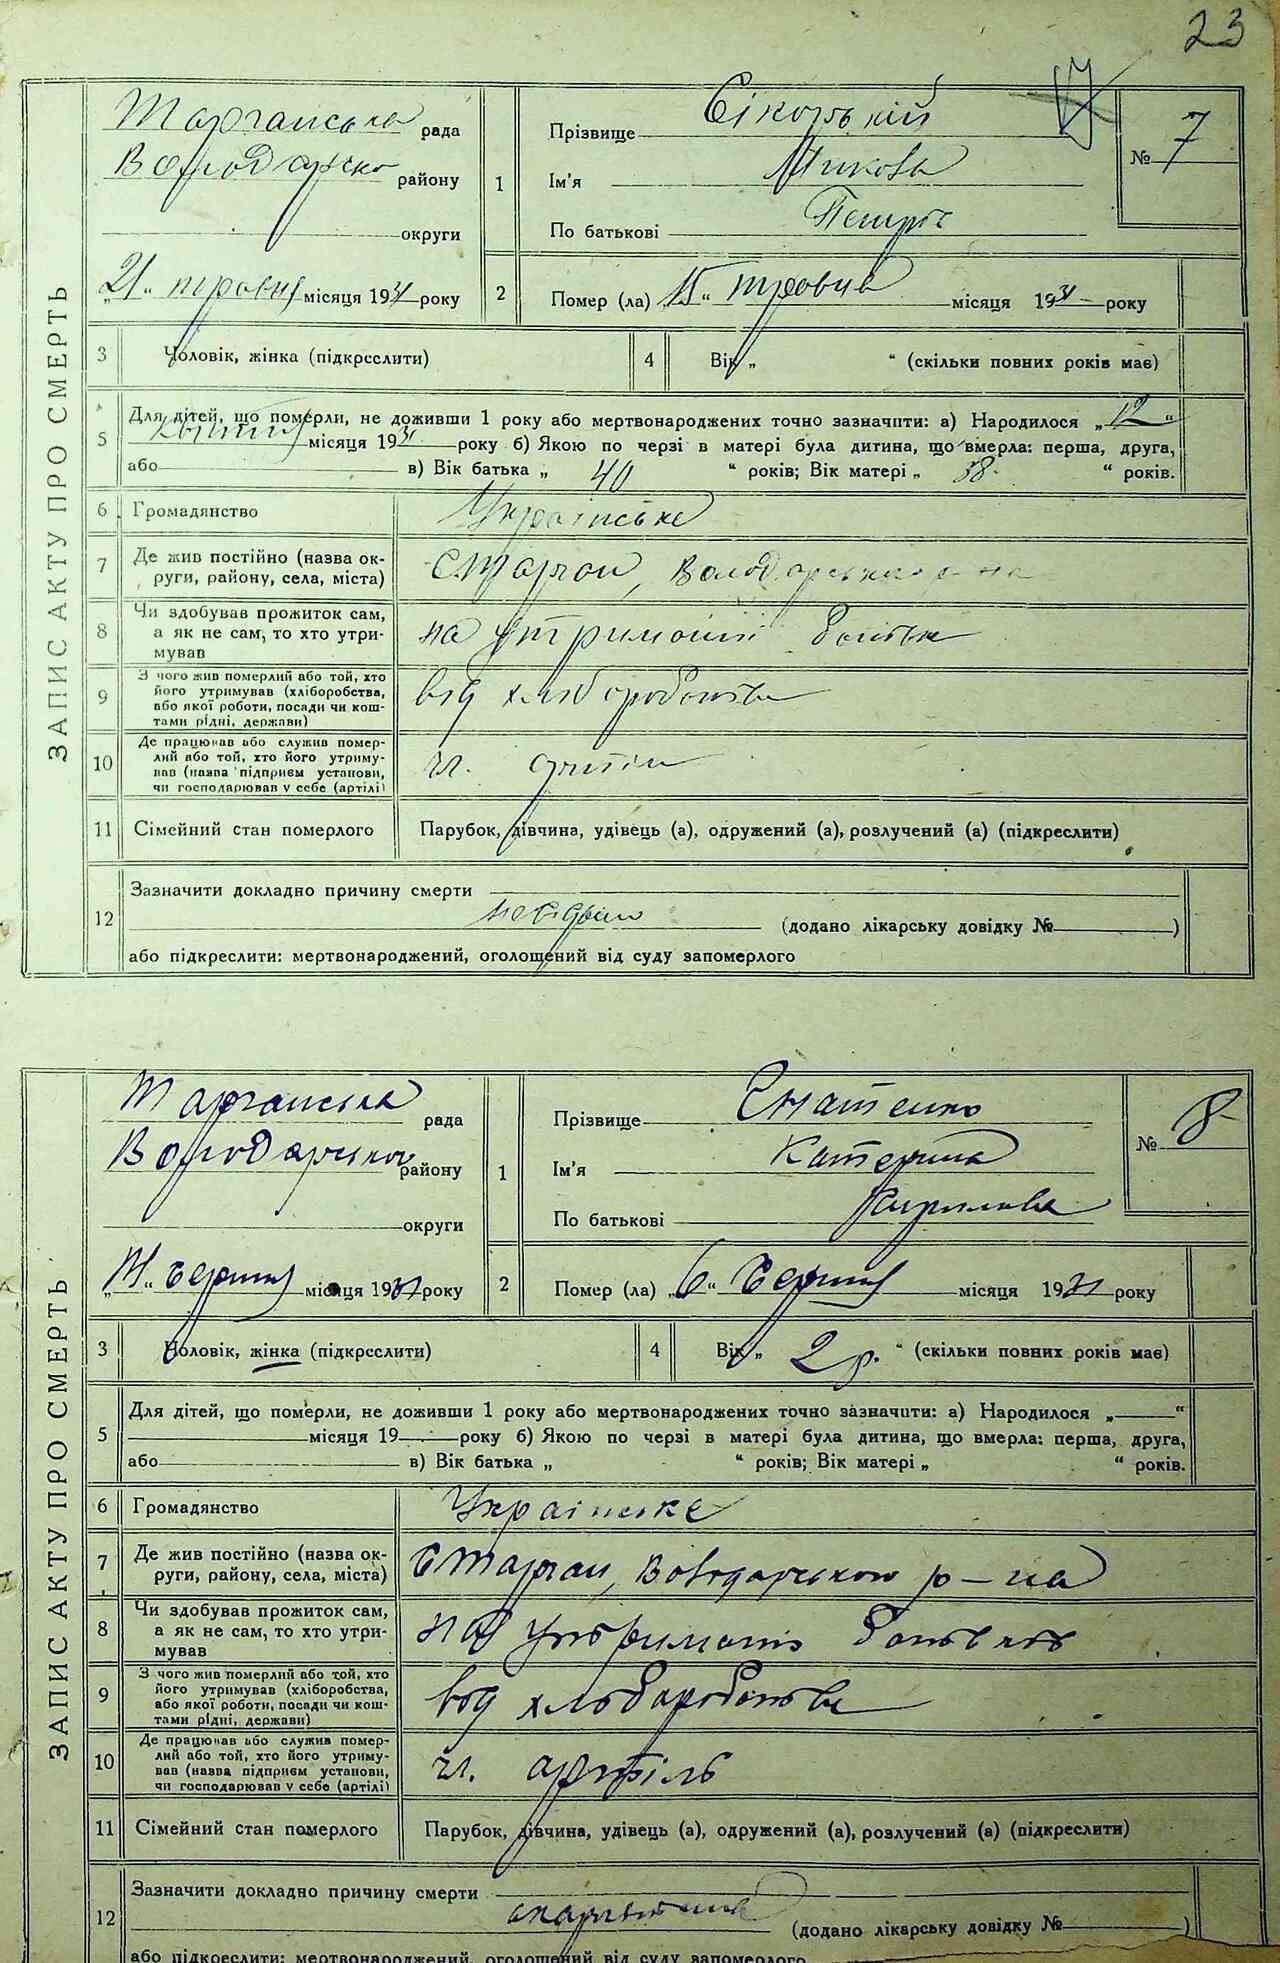 23
ЗАПИС АКТУ ПРО СМЕРТЬ
Тарганська рада
Володарсько району
округи
„21“ травня місяця 1931 року
1
Прізвище Сікорський
Ім'я Микола
По батькові Петров
№ 7
2
Помер (ла) 15“ травня місяця 1931 року
3 Чоловік, жінка (підкреслити)
4 Вік „ “ (скільки повних років має)
5 Для дітей, що померли, не доживши 1 року або мертвонароджених точно зазначити: а) Народилося „12“
квітня місяця 1931 року б) Якою по черзі в матері була дитина, що вмерла: перша, друга,
або в) Вік батька „ 40 “ років; Вік матері „ 38 “ років.
6 Громадянство Українське
7 Де жив постійно (назва округи, району, села, міста) с. Тарган, Володарського р-на
8 Чи здобував прожиток сам, а як не сам, то хто утримував на утриманні батьків
9 З чого жив померлий або той, хто його утримував (хліборобства, або якої роботи, посади чи коштами рідні, держави) від хліборобства
10 Де працював або служив померлий або той, хто його утримував (назва підприєм установи, чи господарював у себе (артілі) чл. артілі
11 Сімейний стан померлого Парубок, дівчина, удівець (а), одружений (а), розлучений (а) (підкреслити)
12 Зазначити докладно причину смерти
(додано лікарську довідку № )
або підкреслити: мертвонароджений, оголошений від суду запомерлого
ЗАПИС АКТУ ПРО СМЕРТЬ
Тарганська рада
Володарського району
округи
березня місяця 1931 року
1
Прізвище Снатенко
Ім'я Катерина
По батькові Кирилова
№ 8
2
Помер (ла) „6“ березня місяця 1931 року
3 Чоловік, жінка (підкреслити)
4 Вік „ 2 р. “ (скільки повних років має)
5 Для дітей, що померли, не доживши 1 року або мертвонароджених точно зазначити: а) Народилося „ “
місяця 19 року б) Якою по черзі в матері була дитина, що вмерла: перша, друга,
або в) Вік батька „ “ років; Вік матері „ “ років.
6 Громадянство Українське
7 Де жив постійно (назва округи, району, села, міста) с Тарган, Володарського р-на
8 Чи здобував прожиток сам, а як не сам, то хто утримував на утриманні батьків
9 З чого жив померлий або той, хто його утримував (хліборобства, або якої роботи, посади чи коштами рідні, держави) від хліборобства
10 Де працював або служив померлий або той, хто його утримував (назва підприєм установи, чи господарював у себе (артілі) чл. артіль
11 Сімейний стан померлого Парубок, дівчина, удівець (а), одружений (а), розлучений (а) (підкреслити)
12 Зазначити докладно причину смерти
скарлатина (додано лікарську довідку № )
або підкреслити: мертвонароджений, оголошений від суду запомерлого